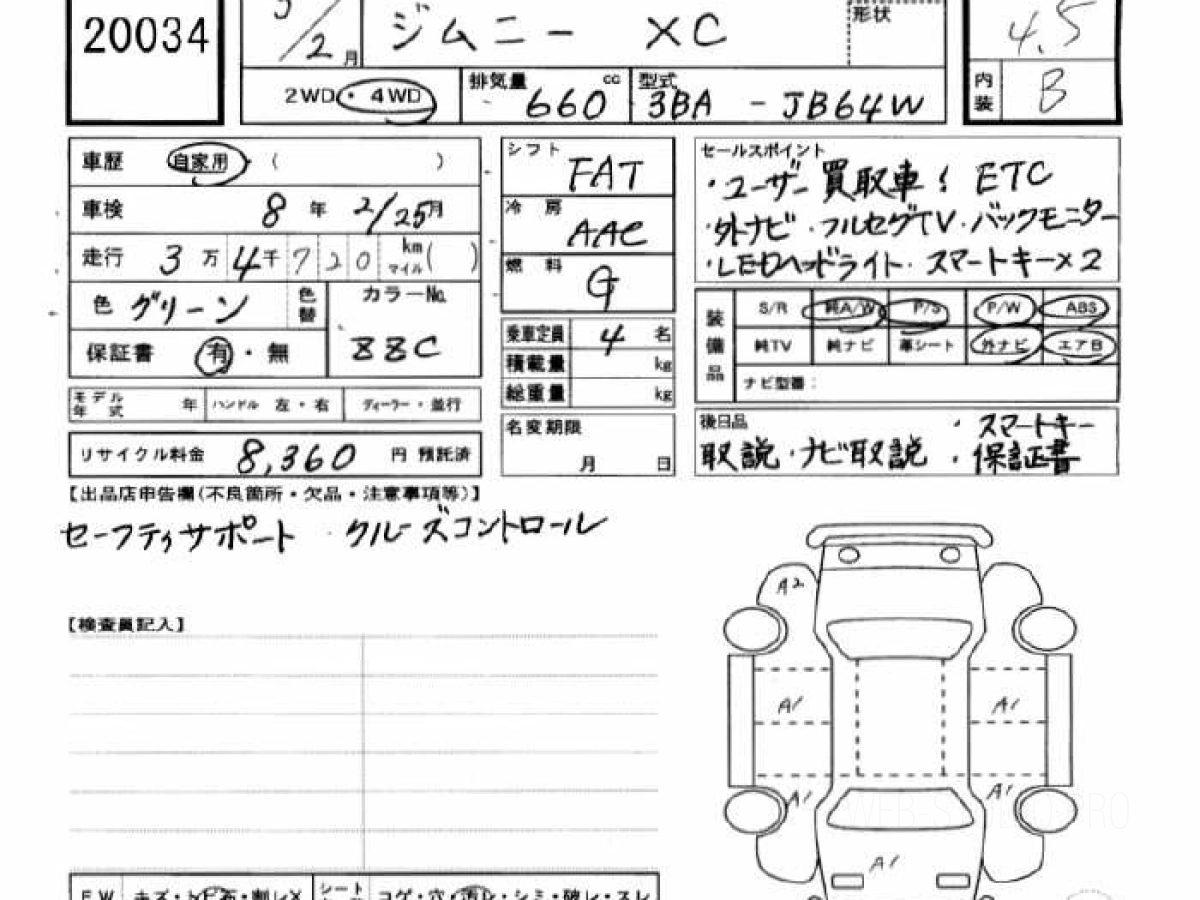 20034
/2月
ジムニー XC
形状
4.5
2WD・4WD
排気量 660 cc
型式 3BA - JB64W
内装 B
車歴 自家用 ( )
車検 8年 2/25月
走行 3万 4千 720 km マイル ( )
色 グリーン 色替
カラーNo. ZZC
保証書 有・無
モデル年式 年 ハンドル 左・右 ディーラー・並行
リサイクル料金 8,360 円 預託済
シフト FAT
冷房 AAC
燃料 G
乗車定員 4 名
積載量 kg
総重量 kg
名変期限
月 日
セールスポイント
・ユーザー買取車! ETC
・外ナビ・フルセグTV・バックモニター
・LEDヘッドライト・スマートキー×2
装備品
S/R 純A/W P/S P/W ABS
純TV 純ナビ 革シート 外ナビ エアB
ナビ型番:
後日品 ・スマートキー
取説・ナビ取説 ・保証書
【出品店申告欄(不良箇所・欠品・注意事項等)】
セーフティサポート ・クルーズコントロール
【検査員記入】
A2
A1
A1
A1
A1
A1
WEB-S
RO
F.W キズ・ト
石・割レX シート コゲ・穴・汚レ・シミ・破レ・スレ